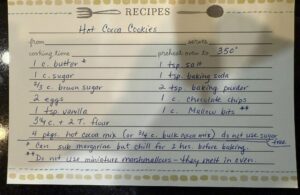 RECIPES
Hot Cocoa Cookies
from serves
cooking time preheat oven to 350°
1 c. butter * 1 tsp. salt
1 c. sugar 1 tsp. baking soda
2/3 c. brown sugar 2 tsp. baking powder
2 eggs 1 c. chocolate chips
1 tsp. vanilla 1 c. Mallow bits **
3 1/4 c. + 2 T. flour
4 pkgs. hot cocoa mix (or 3/4 c. bulk cocoa mix) do not use sugar free.
* Can sub margarine but chill for 2 hrs. before baking.
** Do not use miniature marshmallows - they melt in oven.